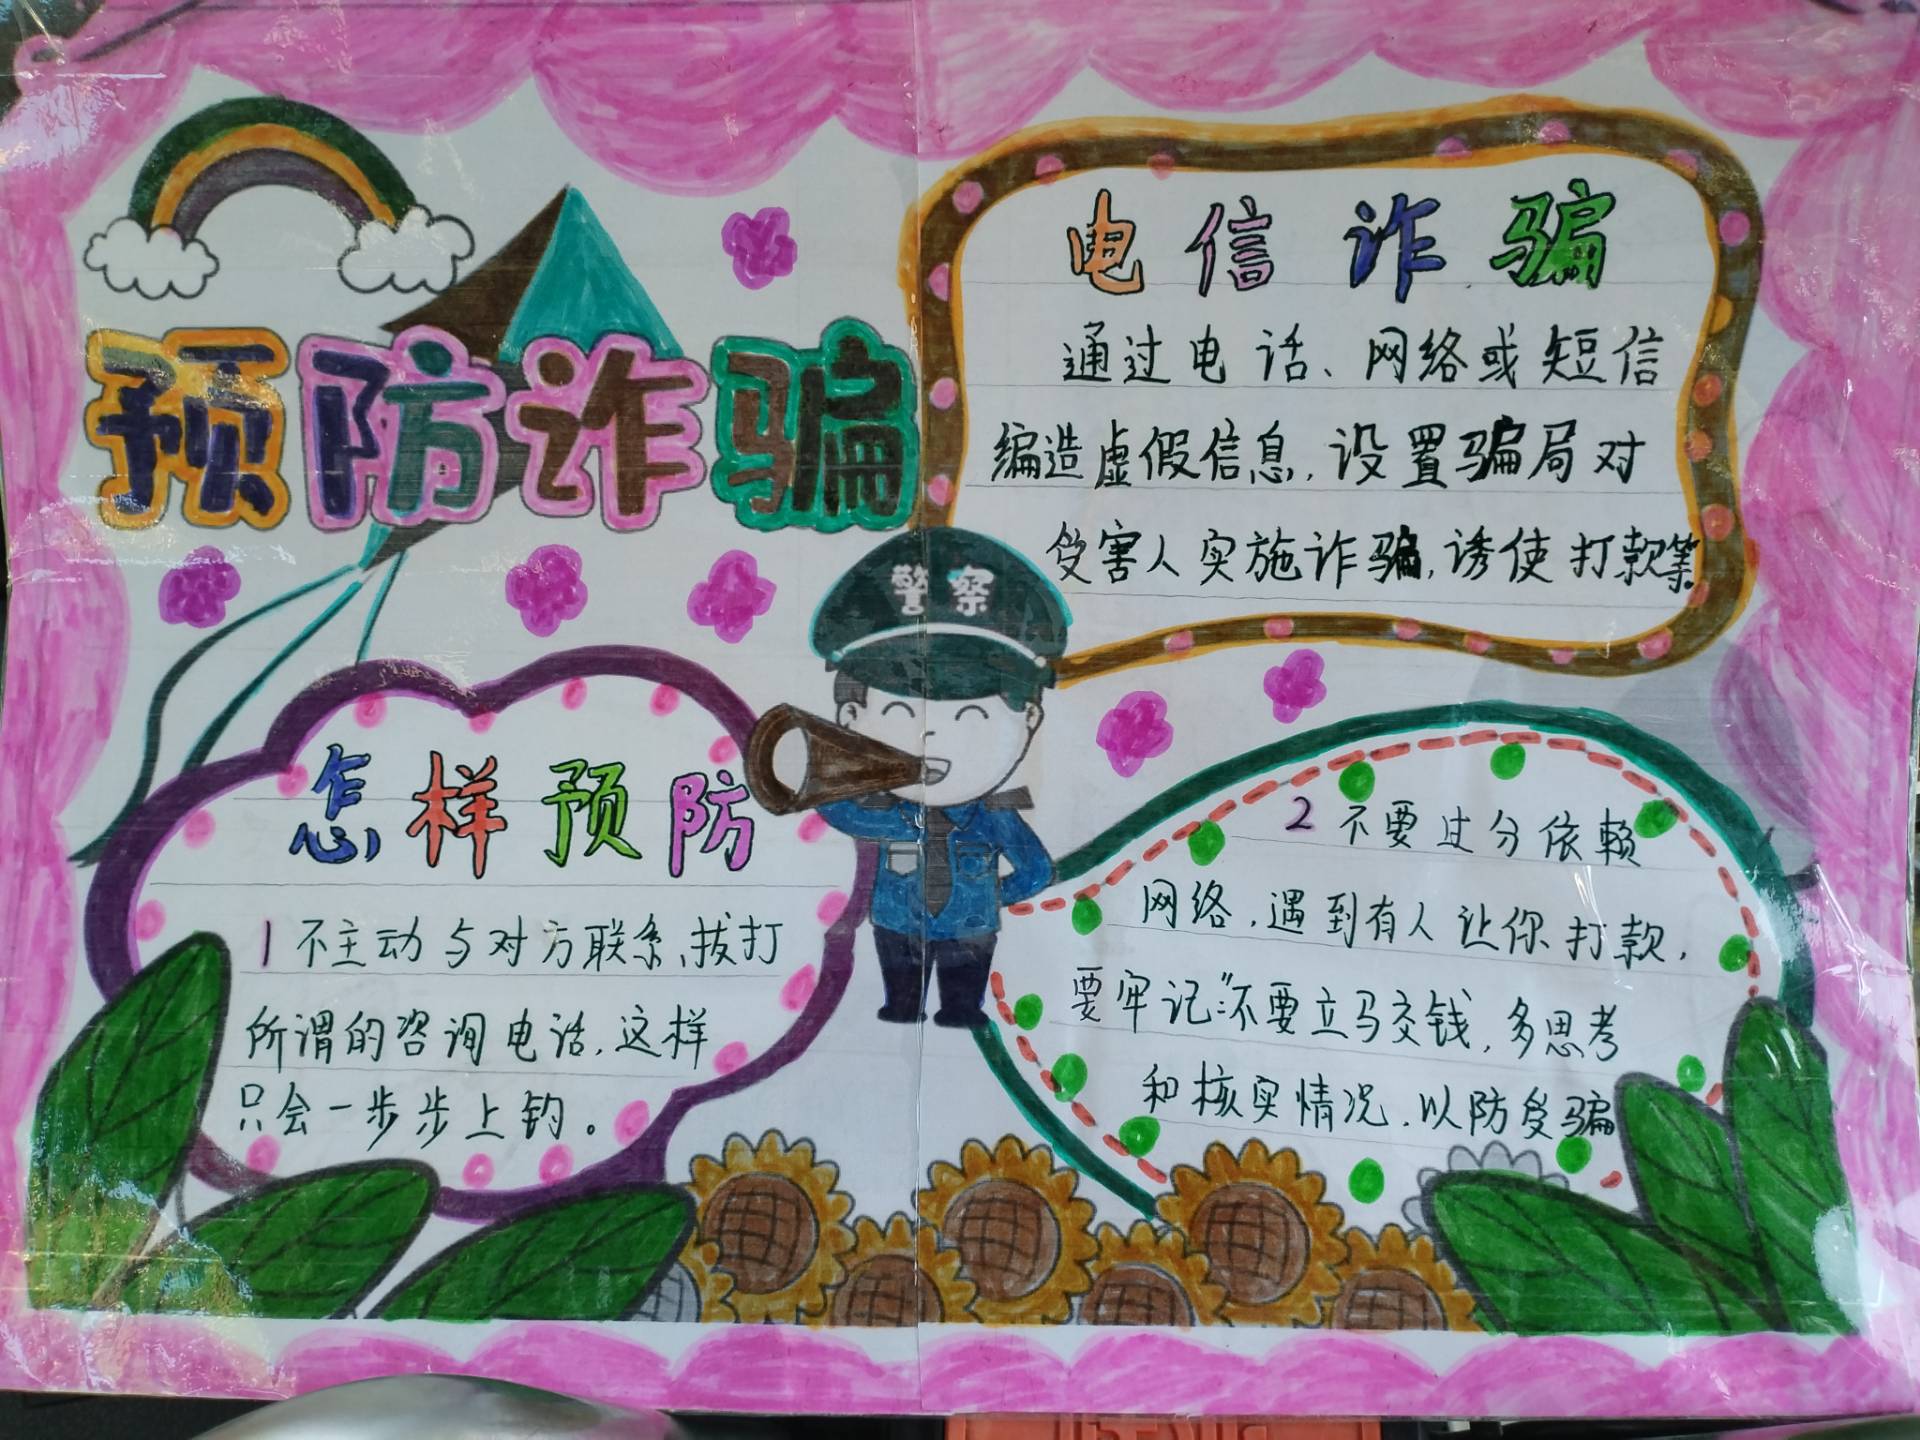 预防诈骗
电信诈骗
通过电话、网络或短信
编造虚假信息,设置骗局对
受害人实施诈骗,诱使打款等
警察
怎样预防
1不主动与对方联系、拔打
所谓的咨询电话,这样
只会一步步上钓。
2不要过分依赖
网络,遇到有人让你打款,
要牢记“不要立马交钱,多思考
和核实情况,以防受骗